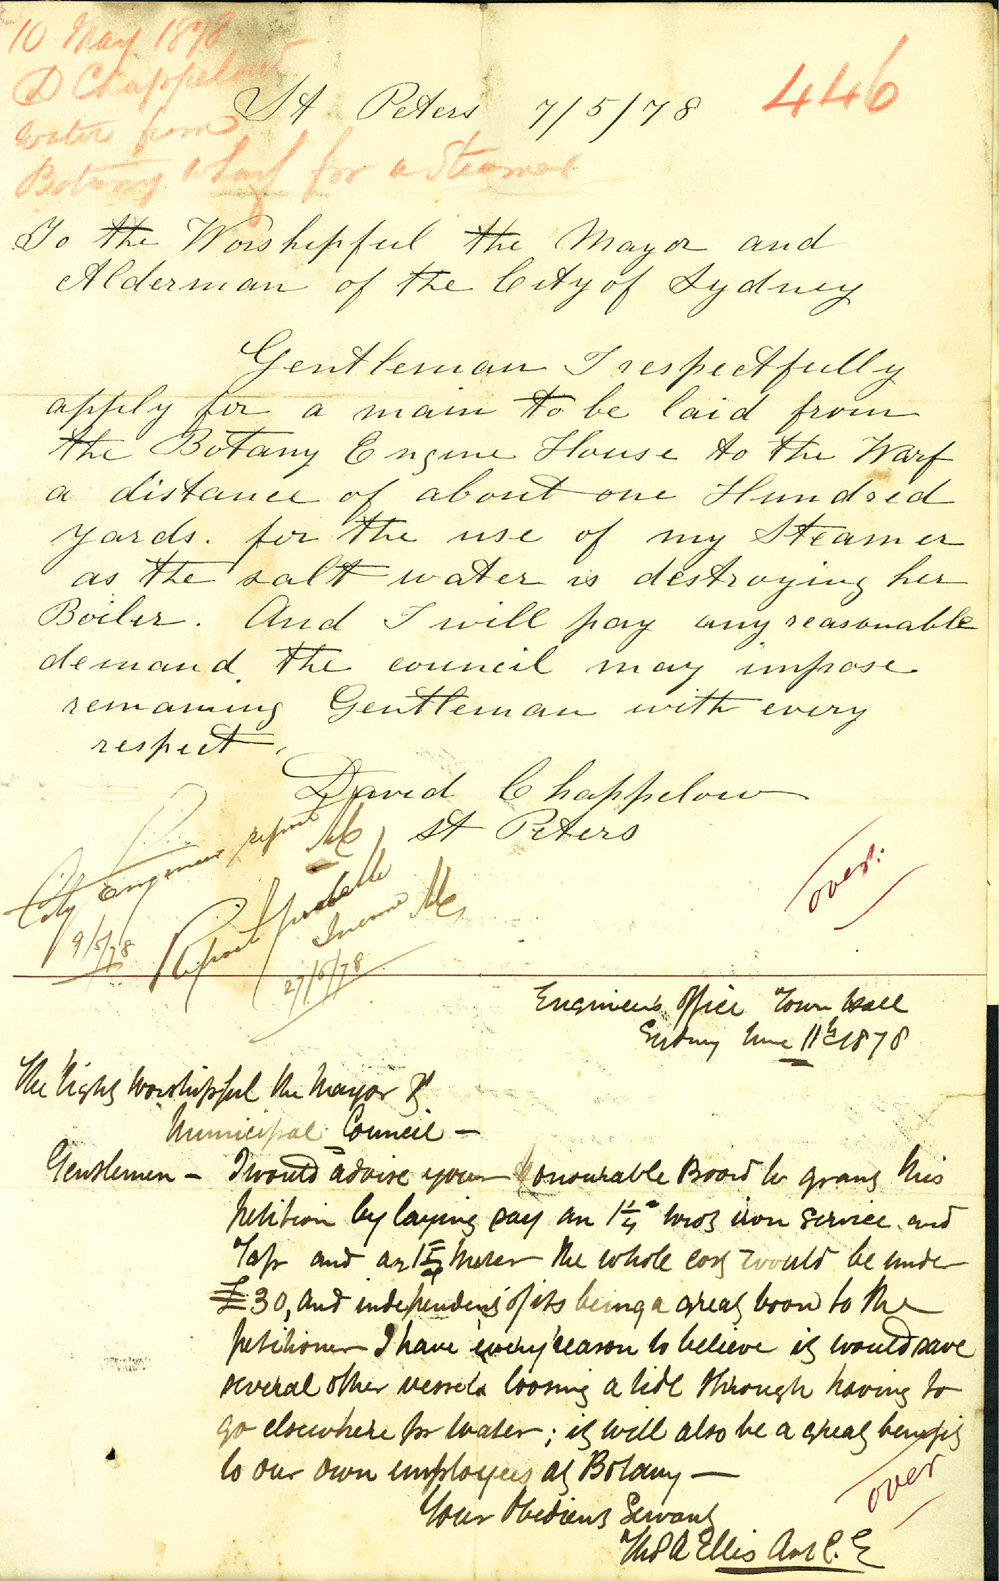 10 May 1878
D Chappelow
water from
Botany Wharf for a Steamer
446
St Peters 7/5/78
To the Worshipful the Mayor and
Alderman of the City of Sydney
Gentleman I respectfully
apply for a main to be laid from
the Botany Engine House to the Warf
a distance of about one Hundred
yards. for the use of my Steamer
as the salt water is destroying her
Boiler. And I will pay any reasonable
demand. the council may impose
remaining Gentleman with every
respect.
David Chappelow
St Peters
City Engineer report
9/5/78
Report
27/5/78
over:
Engineer's Office Town Hall
Sydney June 11th 1878
The Right Worshipful the Mayor &
Municipal Council —
Gentlemen — I would advise your Honourable Board to grant this
petition by laying say an 1 1/4" wrot iron service and
Tap and an 1 1/4 Meter the whole cost would be under
£30, and independent of its being a great boon to the
petitioner I have every reason to believe it would save
several other vessels loosing a tide through having to
go elsewhere for water; it will also be a great benefit
to our own employees at Botany —
Your Obedient Servant
Thos A Ellis Ast C. E
over